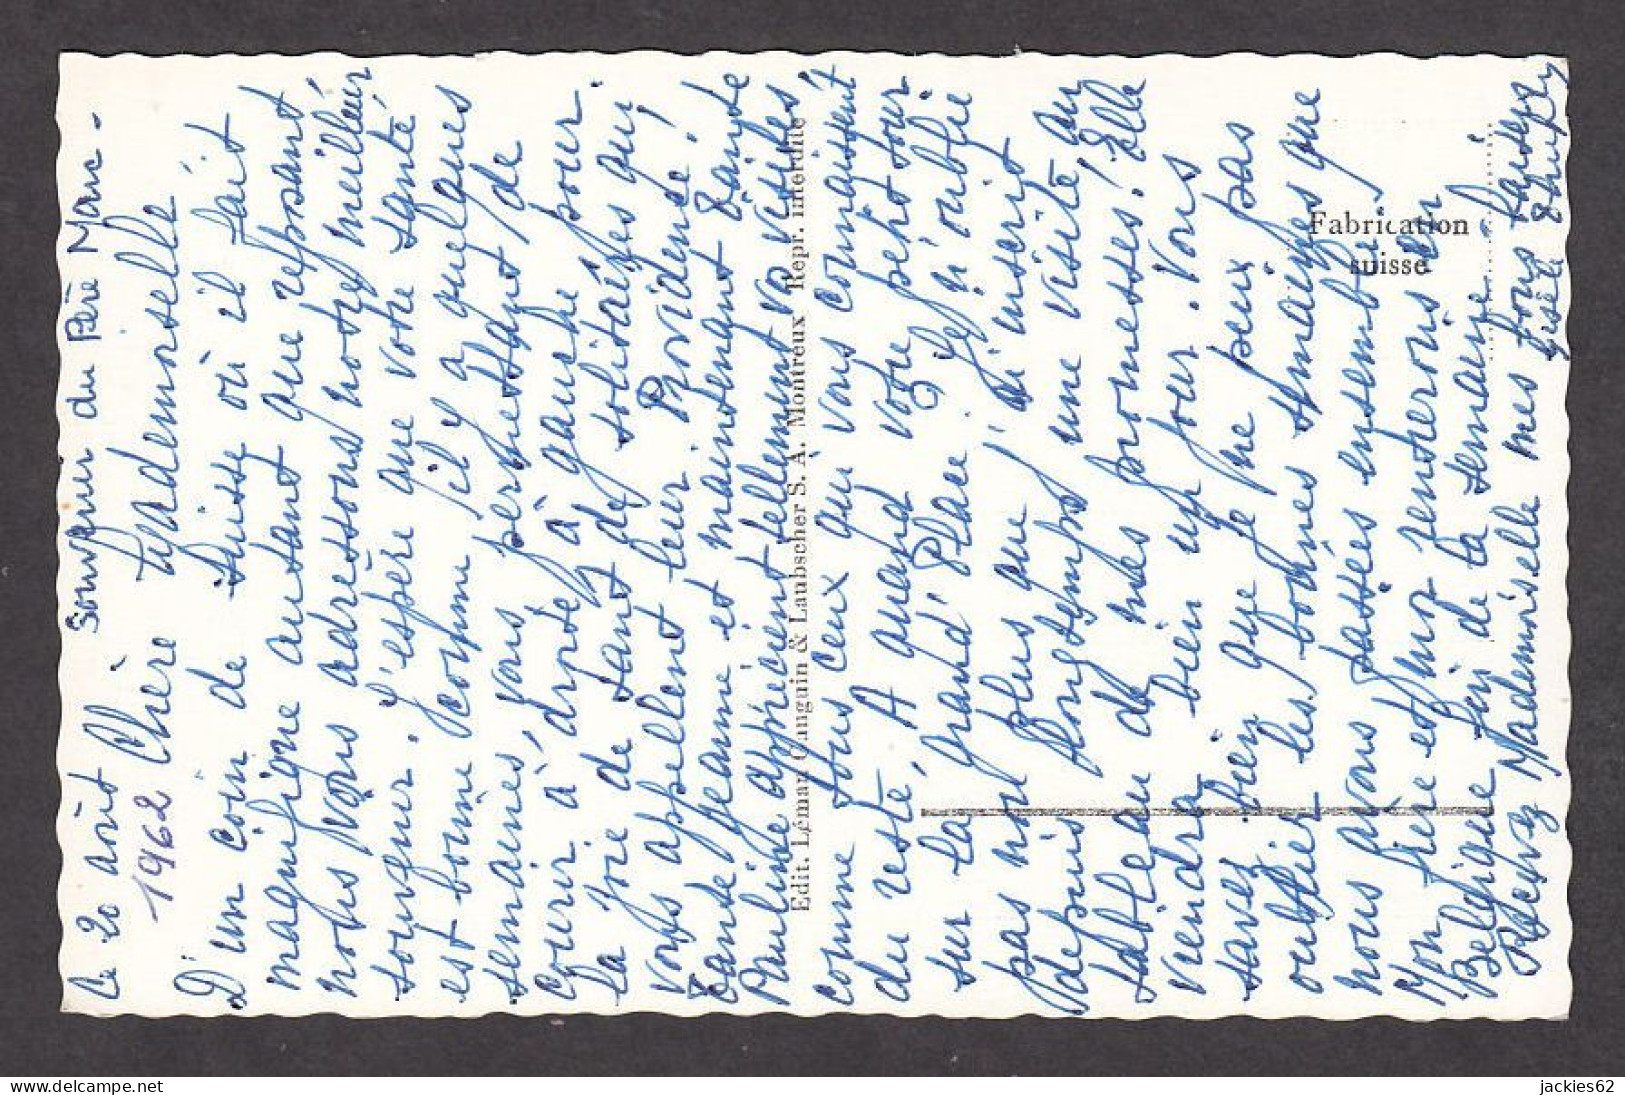 Souvenir du Père Marc -
Ce 20 août
1962
Chère Mademoiselle
D'un coin de Suisse où il fait
magnifique autant que reposant
nous vous adressons notre meilleur
souvenir. J'espère que votre santé
est bonne comme il y a quelques
semaines, vous permettant de
courir à droite, à gauche pour
la joie de tant de solitaires qui
vous appellent leur Providence!
Tante Jeanne et maintenant Tante
Pauline apprécient tellement vos visites,
comme tous ceux qui vous connaissent
du reste. A quand votre petit tour
sur la Grand'Place? Je n'oublie
pas non plus que j'ai inscrit
depuis longtemps une visite au
tableau de mes promesses! Elle
viendra bien un jour. Vous
savez bien que je ne peux pas
oublier les bonnes semaines que
nous avons passées ensemble.
Mon frère et moi rentrerons en
Belgique fin de la semaine.
Recevez Mademoiselle mes bons baisers
Gisèle
Edit. Léman Ganguin & Laubscher S. A. Montreux Repr. interdite
Fabrication
suisse
jackies62